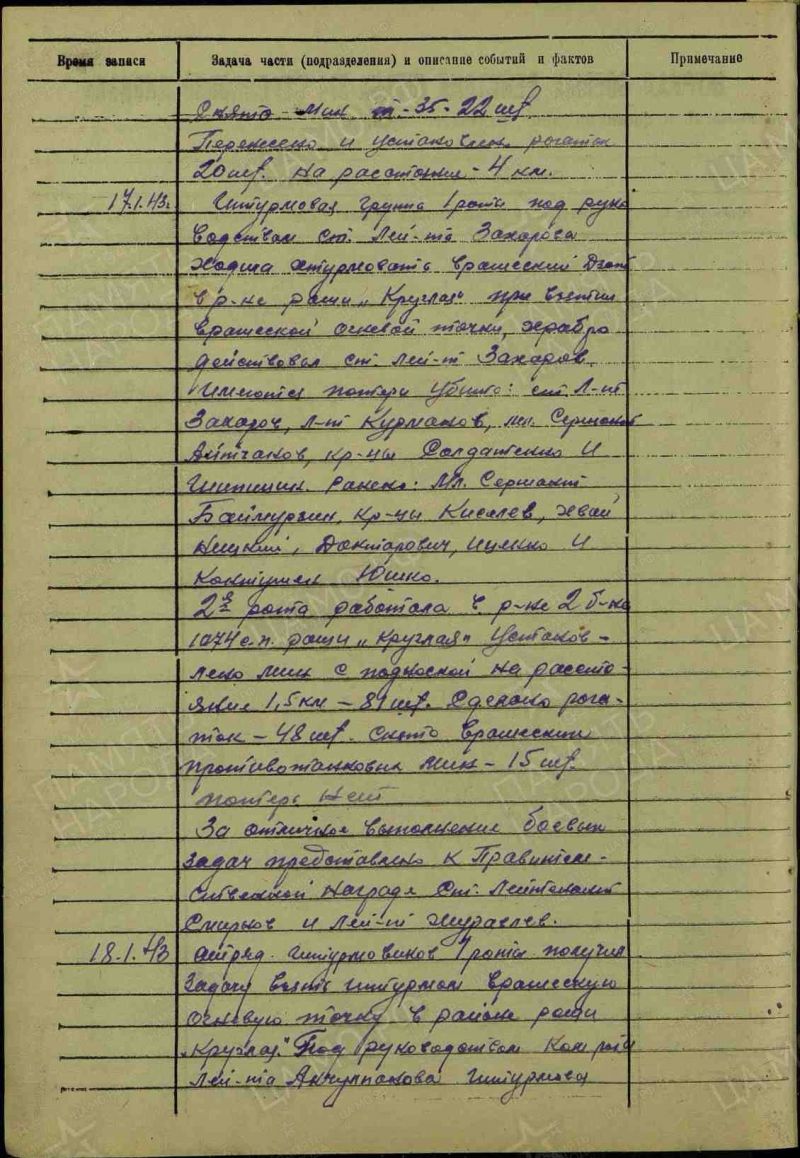 Время записи Задача части (подразделения) и описание событий и фактов Примечание
Снято мин т-35-22 шт.
Перенесено и установлен. рогаток
20 шт. на расстояние - 4 км.
17.1.43г. Штурмовая группа 1 роты под руко
водством ст. лей-та Захарова
ходила штурмовать вражеский Дзот
в р-не рощи „Круглая" при взятии
вражеской огневой точки, храбро
действовал ст. лей-т Захаров.
Имеются потери Убито: ст. л-нт
Захаров, л-нт Курманов, мл. Сержант
Айтчанов, кр-цы Солдатенко и
Шипицин. Ранено: Мл. Сержант
Баймурзин, кр-цы Киселев,
Доктарович, Ищенко и
Контужен Юшко.
2я рота работала в р-не 2 б-на
1074 с.п. рощи „Круглая" Установ-
лено мин с подноской на рассто-
яние 1,5 км - 81 шт. Сделано рога-
ток - 48 шт. Снято вражеских
противотанковых мин - 15 шт.
потерь нет
За отличное выполнение боевых
задач представлено к Правитель-
ственной награде Ст. Лейтенант
Смирнов и Лей-т Журавлев.
18.1.43 отряд штурмовиков 1 роты получил
Задачу взять штурмом вражескую
огневую точку в районе рощи
„Круглая." Под руководством Ком роты
Лей-та Акчулпанова штурмова